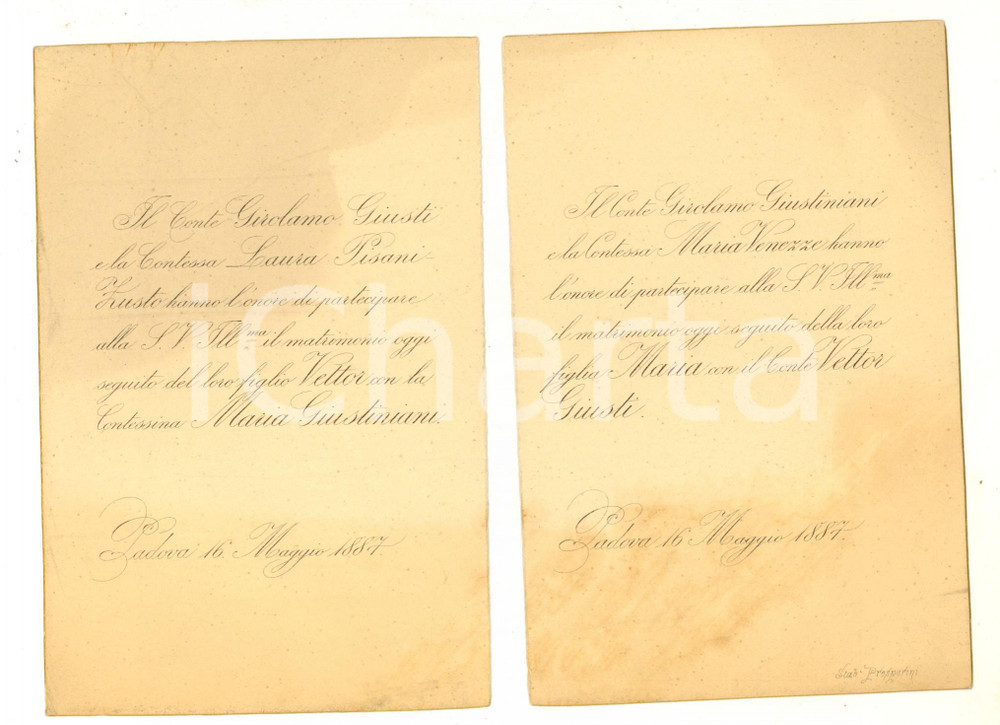 Il Conte Girolamo Giusti
e la Contessa Laura Pisani-
Zusto hanno l'onore di partecipare
alla S. V. Ill.ma il matrimonio oggi
seguito del loro figlio Vettor con la
Contessina Maria Giustiniani.
Padova 16 Maggio 1887.
Il Conte Girolamo Giustiniani
e la Contessa Maria Venezze hanno
l'onore di partecipare alla S. V. Ill.ma
il matrimonio oggi seguito della loro
figlia Maria con il Conte Vettor
Giusti.
Padova 16 Maggio 1887.
Prosperini
iCharta